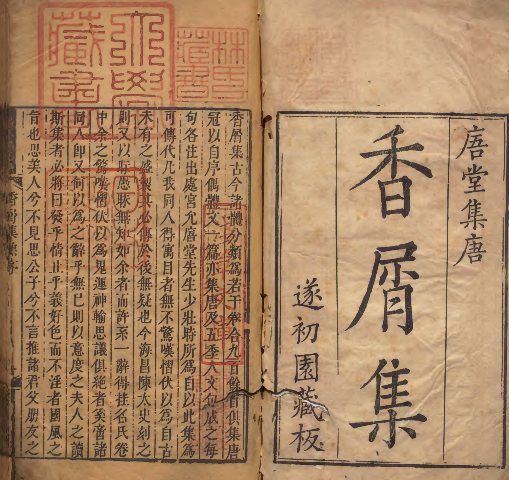 唐堂集唐
香屑集
遂初園藏板
香屑集古今諸體分類為若干卷合九百餘首俱集唐
冠以自序偶體文一篇亦集唐及五季人文句成之每
句各注出處宮允唐堂先生少壯時所為自以此集為
可傳代凡我同人得寓目者無不驚嘆慴伏以為自古
未有之盛製其必傳於後無疑也今海昌陳太史刻之
則又以愚無知如余者而許系一辭得挂名氏卷
中余之驚嘆慴伏以為鬼運神輸思議俱絕者奚啻諸
同人即又何以為之辭乎無已則以意度之夫人之讀
斯集者必將曰發乎情止乎義好色而不淫者國風之
旨也思美人兮不見思公子兮不言推諸君父朋友之
香屑集
林氏藏書
藏書